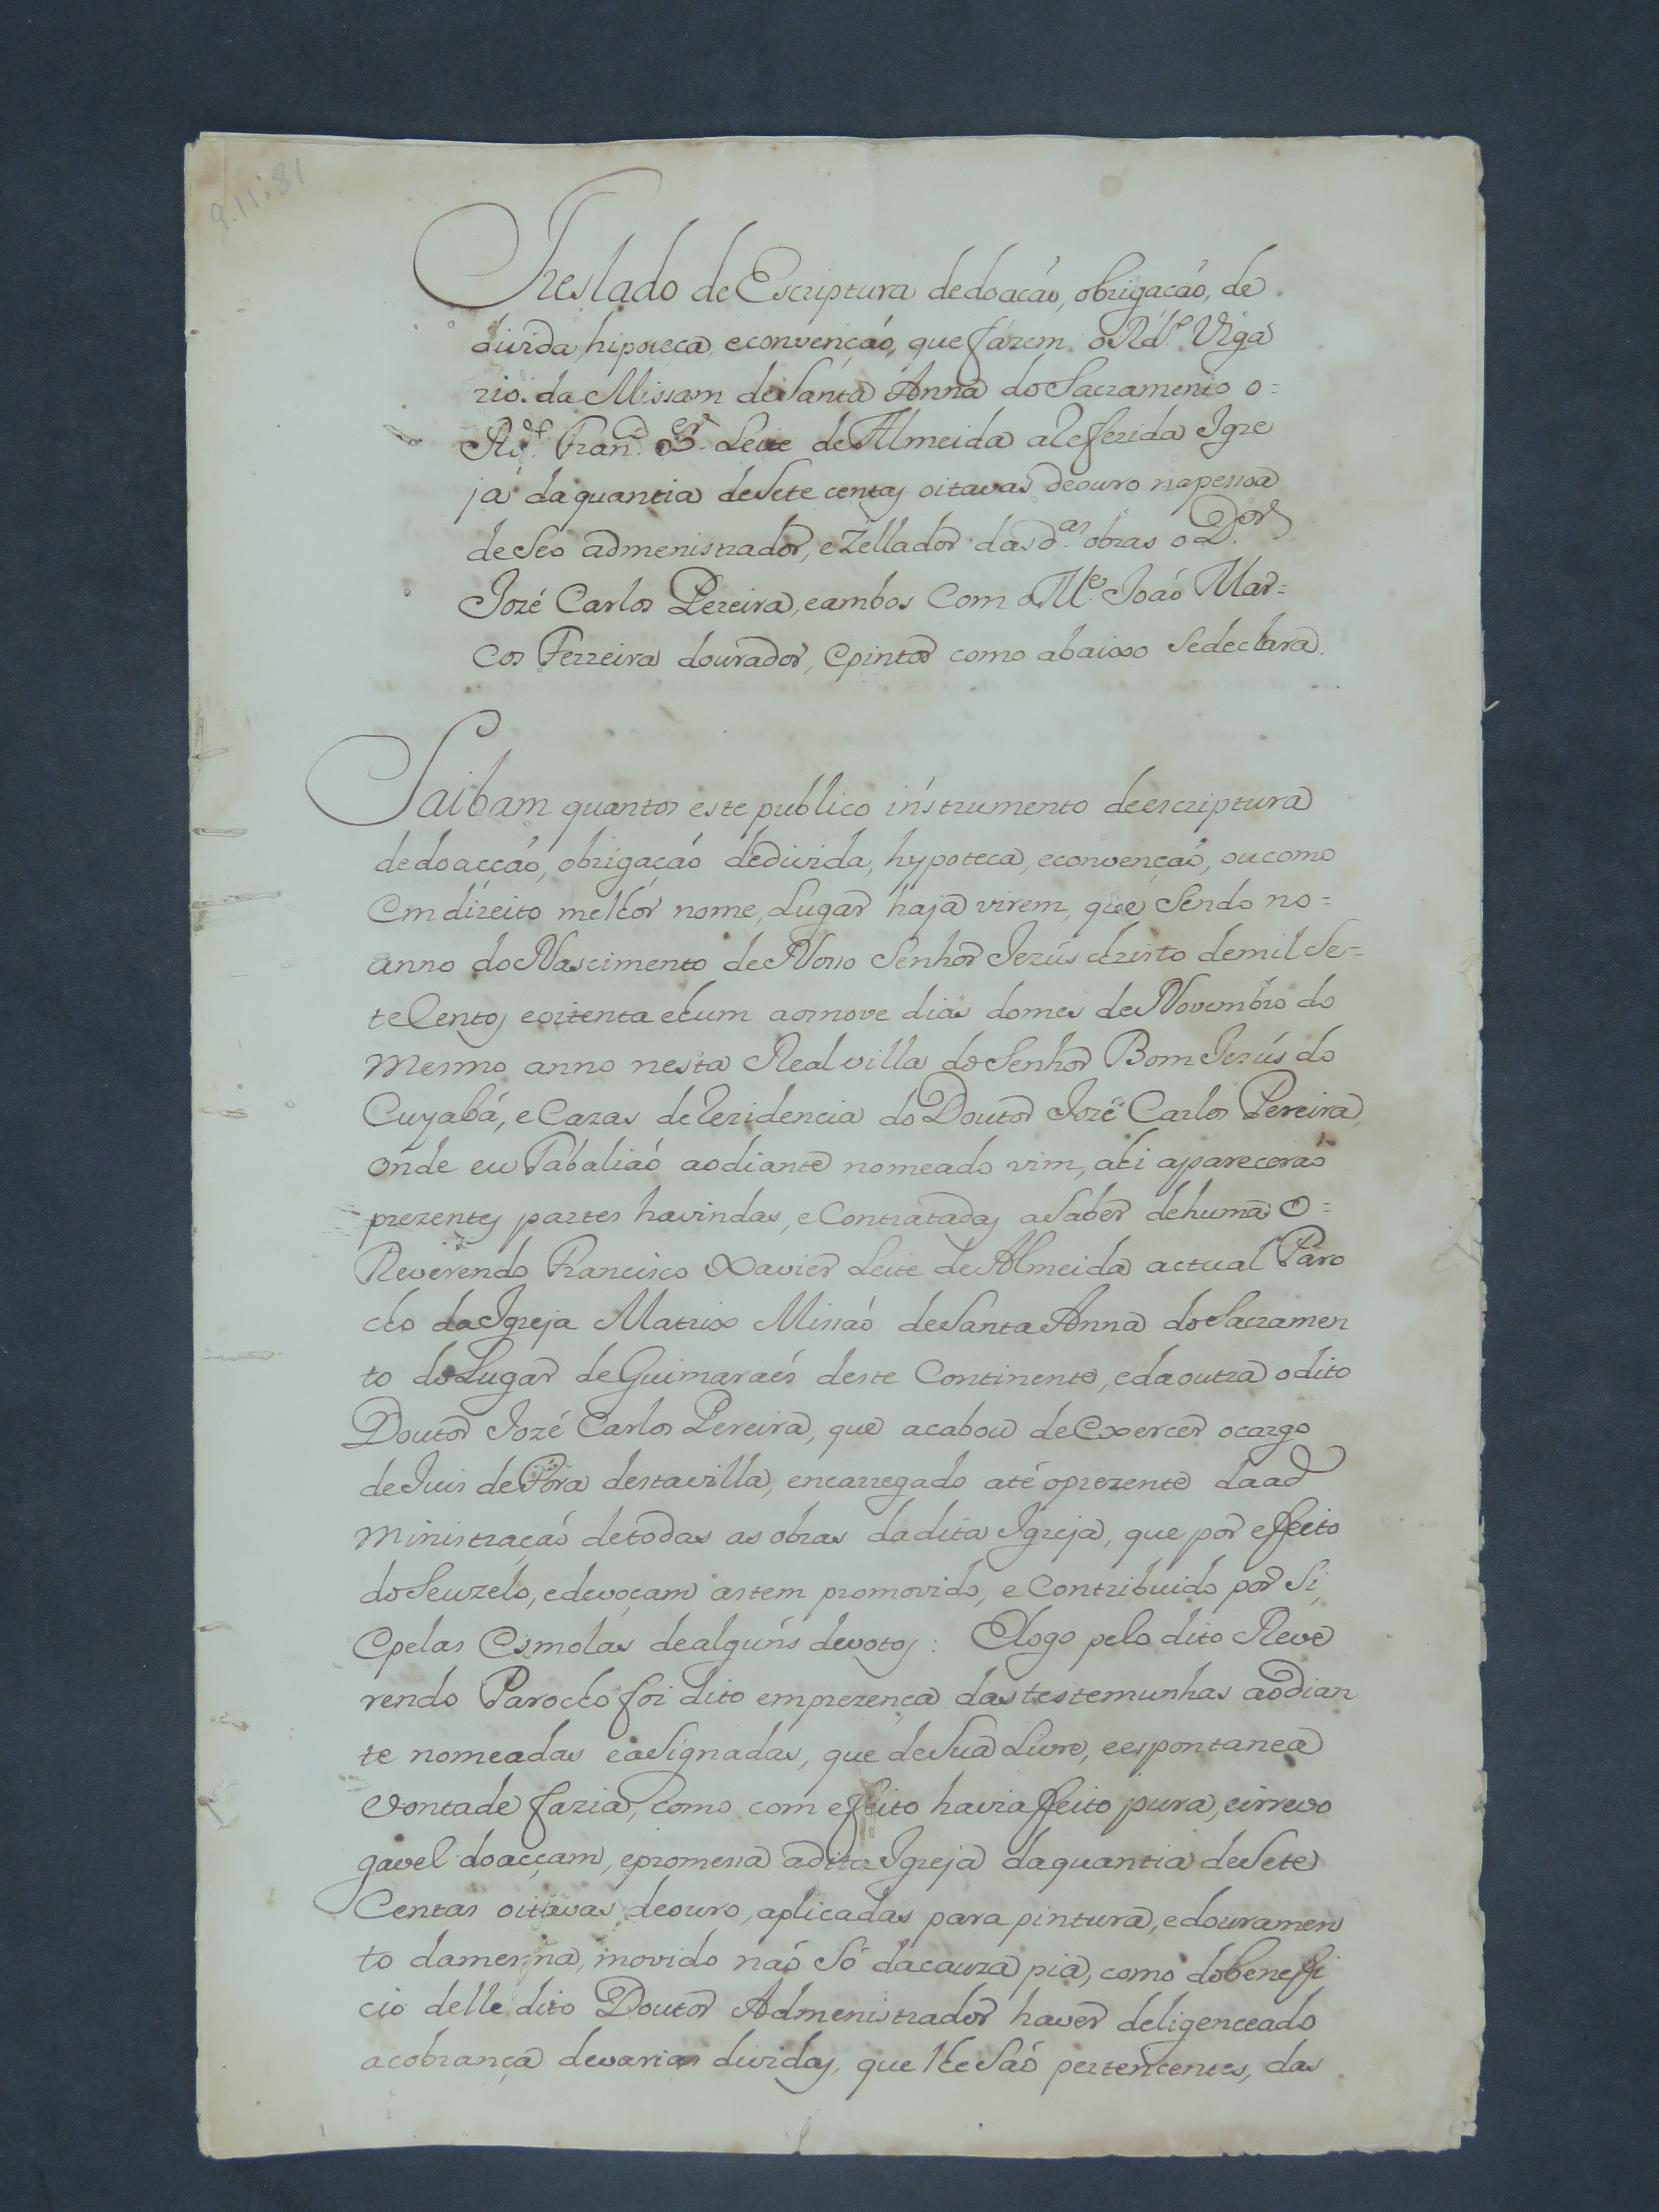 9.11.81
Treslado de Escriptura dedoacáo, obrigacáo, de
divida, hipoteca, econvencáo, que fazem o Rdº. Viga
rio. da Missam de Santa Anna do Sacramento o=
Rdº. Franº. Xer. Leite de Almeida a Referida Igre
ja da quantia deSete centas oitavas deouro napessoa
de Seo admenistrador, e Zellador das das. obras o Dor.
Jozé Carlos Pereira, eambos Com o Me. Joáo Mar=
Cos Ferreira dourador, Epintor como abaixo Sedeclara.
Saibam quantos este publico instrumento deescriptura
dedoacçáo, obrigaçáo dedivida, hypoteca, econvençáo, oucomo
Em direito melhor nome, Lugar haja virem, que Sendo no=
anno do Nascimento de Nosso Senhor Jezús christo demil Se=
te Centos eoitenta ehum aosnove dias domes de Novembro do
mesmo anno nesta Real villa do Senhor Bom Jezús do
Cuyabá, e Cazas de Rezidencia do Doutor Jozé Carlos Pereira,
onde eu Tabaliaó aodiante nomeado vim, ahi aparecerao
prezentes partes havindas, e Contratadas aSaber dehuma O=
Reverendo Francisco Xavier Leite de Almeida actual Paro
cho da Igreja Matrix Missaó de Santa Anna do Sacramen
to do Lugar de Guimaraés deste Continente, edaoutra odito
Doutor Jozé Carlos Pereira, que acabou de Exercer ocargo
de Juis de Fora destavilla, encarregado até oprezente daad
ministraçaó detodas as obras dadita Igreja, que por effeito
do Seuzelo, edevoçam astem promovido, e Contribuido por Si,
Epelas Esmolas dealguns devotos: Elogo pelo dito Reve
rendo Parocho foi dito emprezença dastestemunhas aodian
te nomeadas easignadas, que deSua Livre, eespontanea
Vontade fazia, como com effeito havia ffeito pura, eirrevo
gavel doacçam, epromessa adita Igreja daquantia deSete
Centas oitavas deouro, aplicadas para pintura, edouramen
to damesma, movido naó Só dacauza pia, como dobeneffi
cio delle dito Doutor Admenistrador haver deligenceado
acobrança devarias dividas, que lhe Saó pertencentes, das